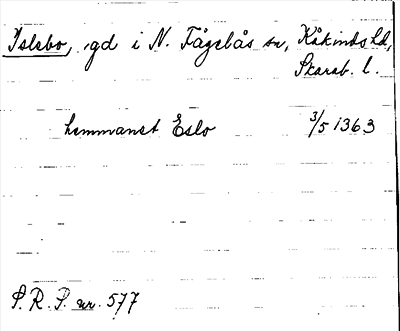 Islebo, gd i N. Fågelås sn, Kåkinds hd,
Skarab. l.
hemmanet Eslo 3/5 1363
S. R. P. nr. 577